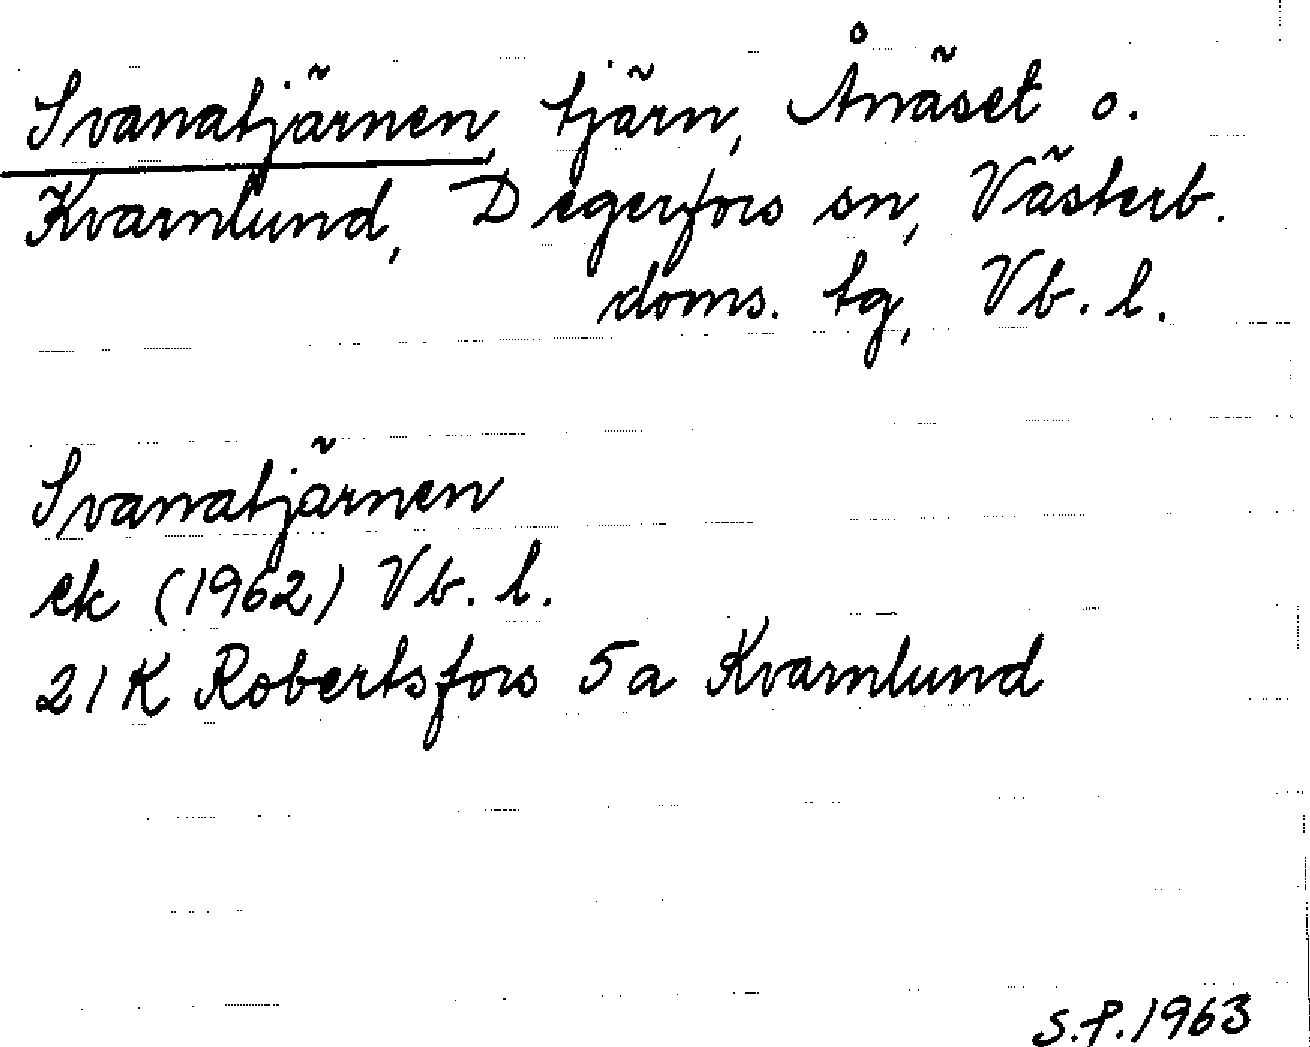 Svanatjärnen, tjärn, Ånäset o.
Kvarnlund, Degerfors sn, Västerb.
doms. tg, Vb. l.
Svanatjärnen
ek (1962) Vb. l.
21K Robertsfors 5a Kvarnlund
S.P. 1963